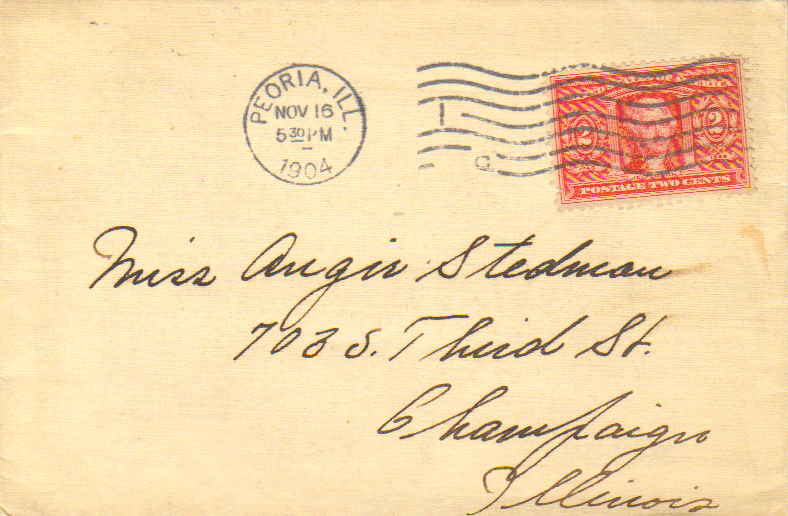 PEORIA, ILL.
NOV 16
5 30 PM
1904
1
C
2 2
POSTAGE TWO CENTS
Miss Angie Stedman
703 S. Third St.
Champaign
Illinois